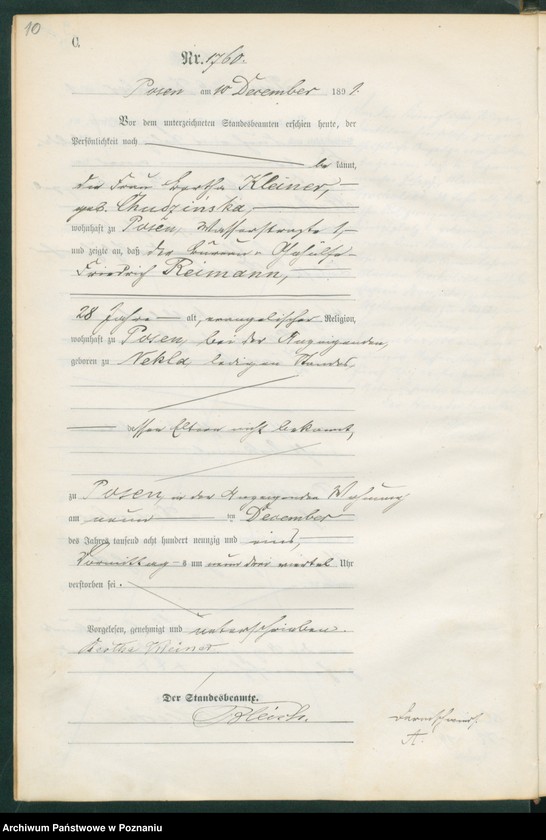 10
C.
Nr. 1760.
Posen am 10 December 1891.
Vor dem unterzeichneten Standesbeamten erschien heute, der
Persönlichkeit nach
be kannt,
die Frau Bertha Kleiner,
geb. Chudzińska,
wohnhaft zu Posen, Wasserstraße 1,
und zeigte an, daß der Büreau-Gehülfe
Friedrich Reimann,
28 Jahre alt, evangelischer Religion,
wohnhaft zu Posen, bei der Anzeigenden,
geboren zu Nekla, ledigen Standes,
dessen Eltern nicht bekannt,
zu Posen in der Anzeigenden Wohnung
am neunten December
des Jahres tausend acht hundert neunzig und eins,
Vormittags um neun drei viertel Uhr
verstorben sei.
Vorgelesen, genehmigt und unterschrieben.
Bertha Kleiner
Der Standesbeamte.
A.
Archiwum Państwowe w Poznaniu